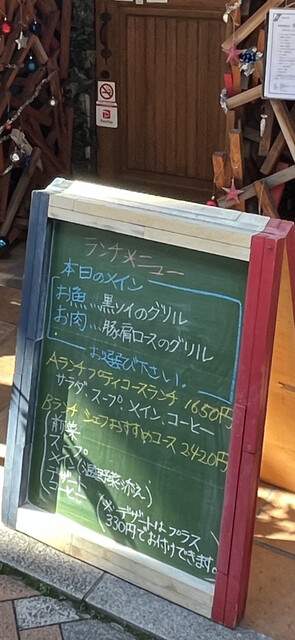 ランチメニュー
本日のメイン
お魚…黒ソイのグリル
お肉…豚肩ロースのグリル
お選び下さい。
Aランチ プティコースランチ 1650円
サラダ、スープ、メイン、コーヒー
Bランチ シェフおすすめコース 2420円
前菜
スープ
メイン(温野菜添え)
デザート
コーヒー
※デザートはプラス
330円でお付けできます。
PayPay